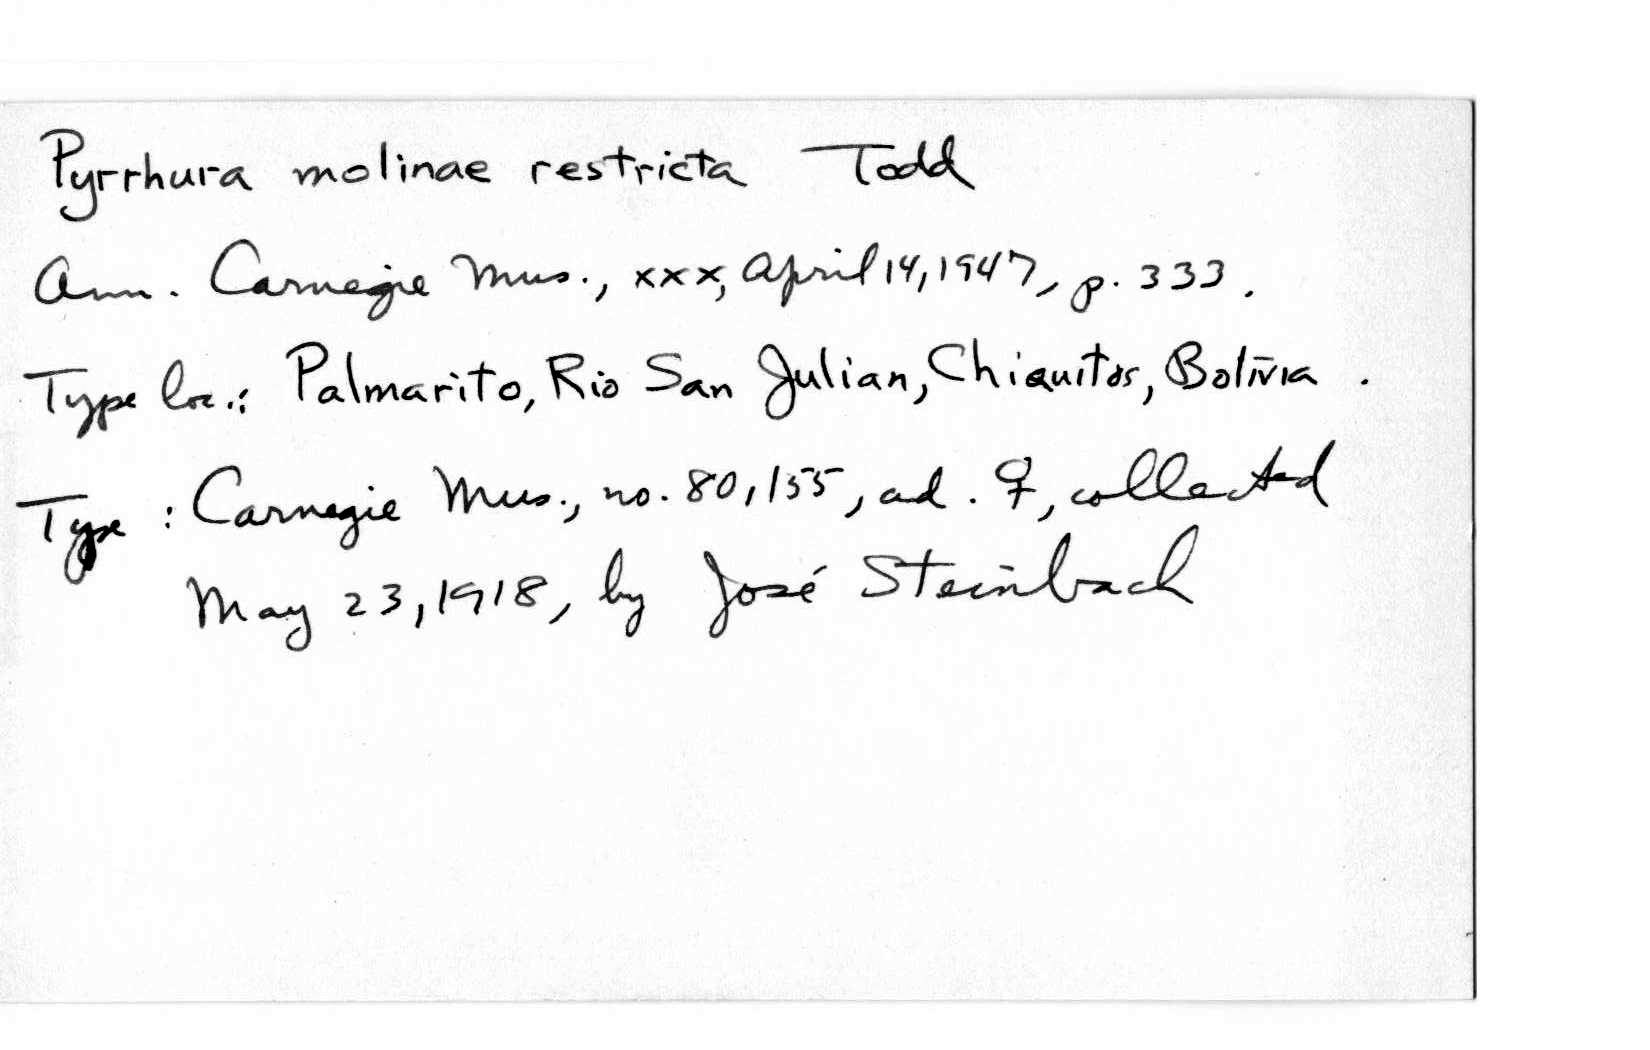 Pyrrhura molinae restricta Todd
Ann. Carnegie Mus., xxx, April 14, 1947, p. 333.
Type loc.: Palmarito, Rio San Julian, Chiquitos, Bolivia.
Type: Carnegie Mus., no. 80,155, ad. ♀, collected
May 23, 1918, by José Steinbach